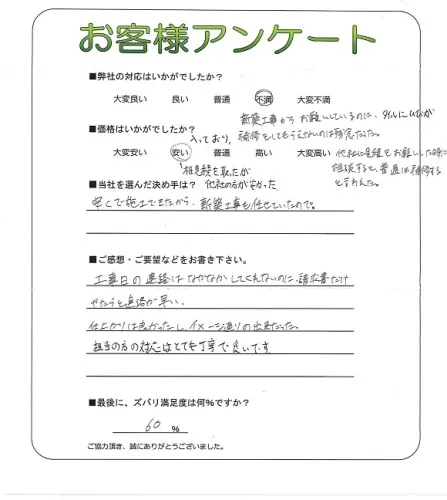 お客様アンケート
■弊社の対応はいかがでしたか?
大変良い 良い 普通 不満 大変不満
新築工事からお願いしているのに、タイルにひびが
入っており、補修をしてもらえないのは残念だった。
■価格はいかがでしたか?
大変安い 安い 普通 高い 大変高い
相見積を取ったが
他社の方が安かった
他社に見積をお願いした時に
相談すると、普通は補修する
と言われた。
■当社を選んだ決め手は?
安くで施工できたから、新築工事も任せていたので。
■ご感想・ご要望などをお書き下さい。
工事日の連絡はなかなかしてくれないのに、請求書だけ
やたらと連絡が早い。
仕上がりは良かったし、イメージ通りの出来だった。
担当の方の対応はとても丁寧で良いです。
■最後に、ズバリ満足度は何%ですか?
60 %
ご協力頂き、誠にありがとうございました。